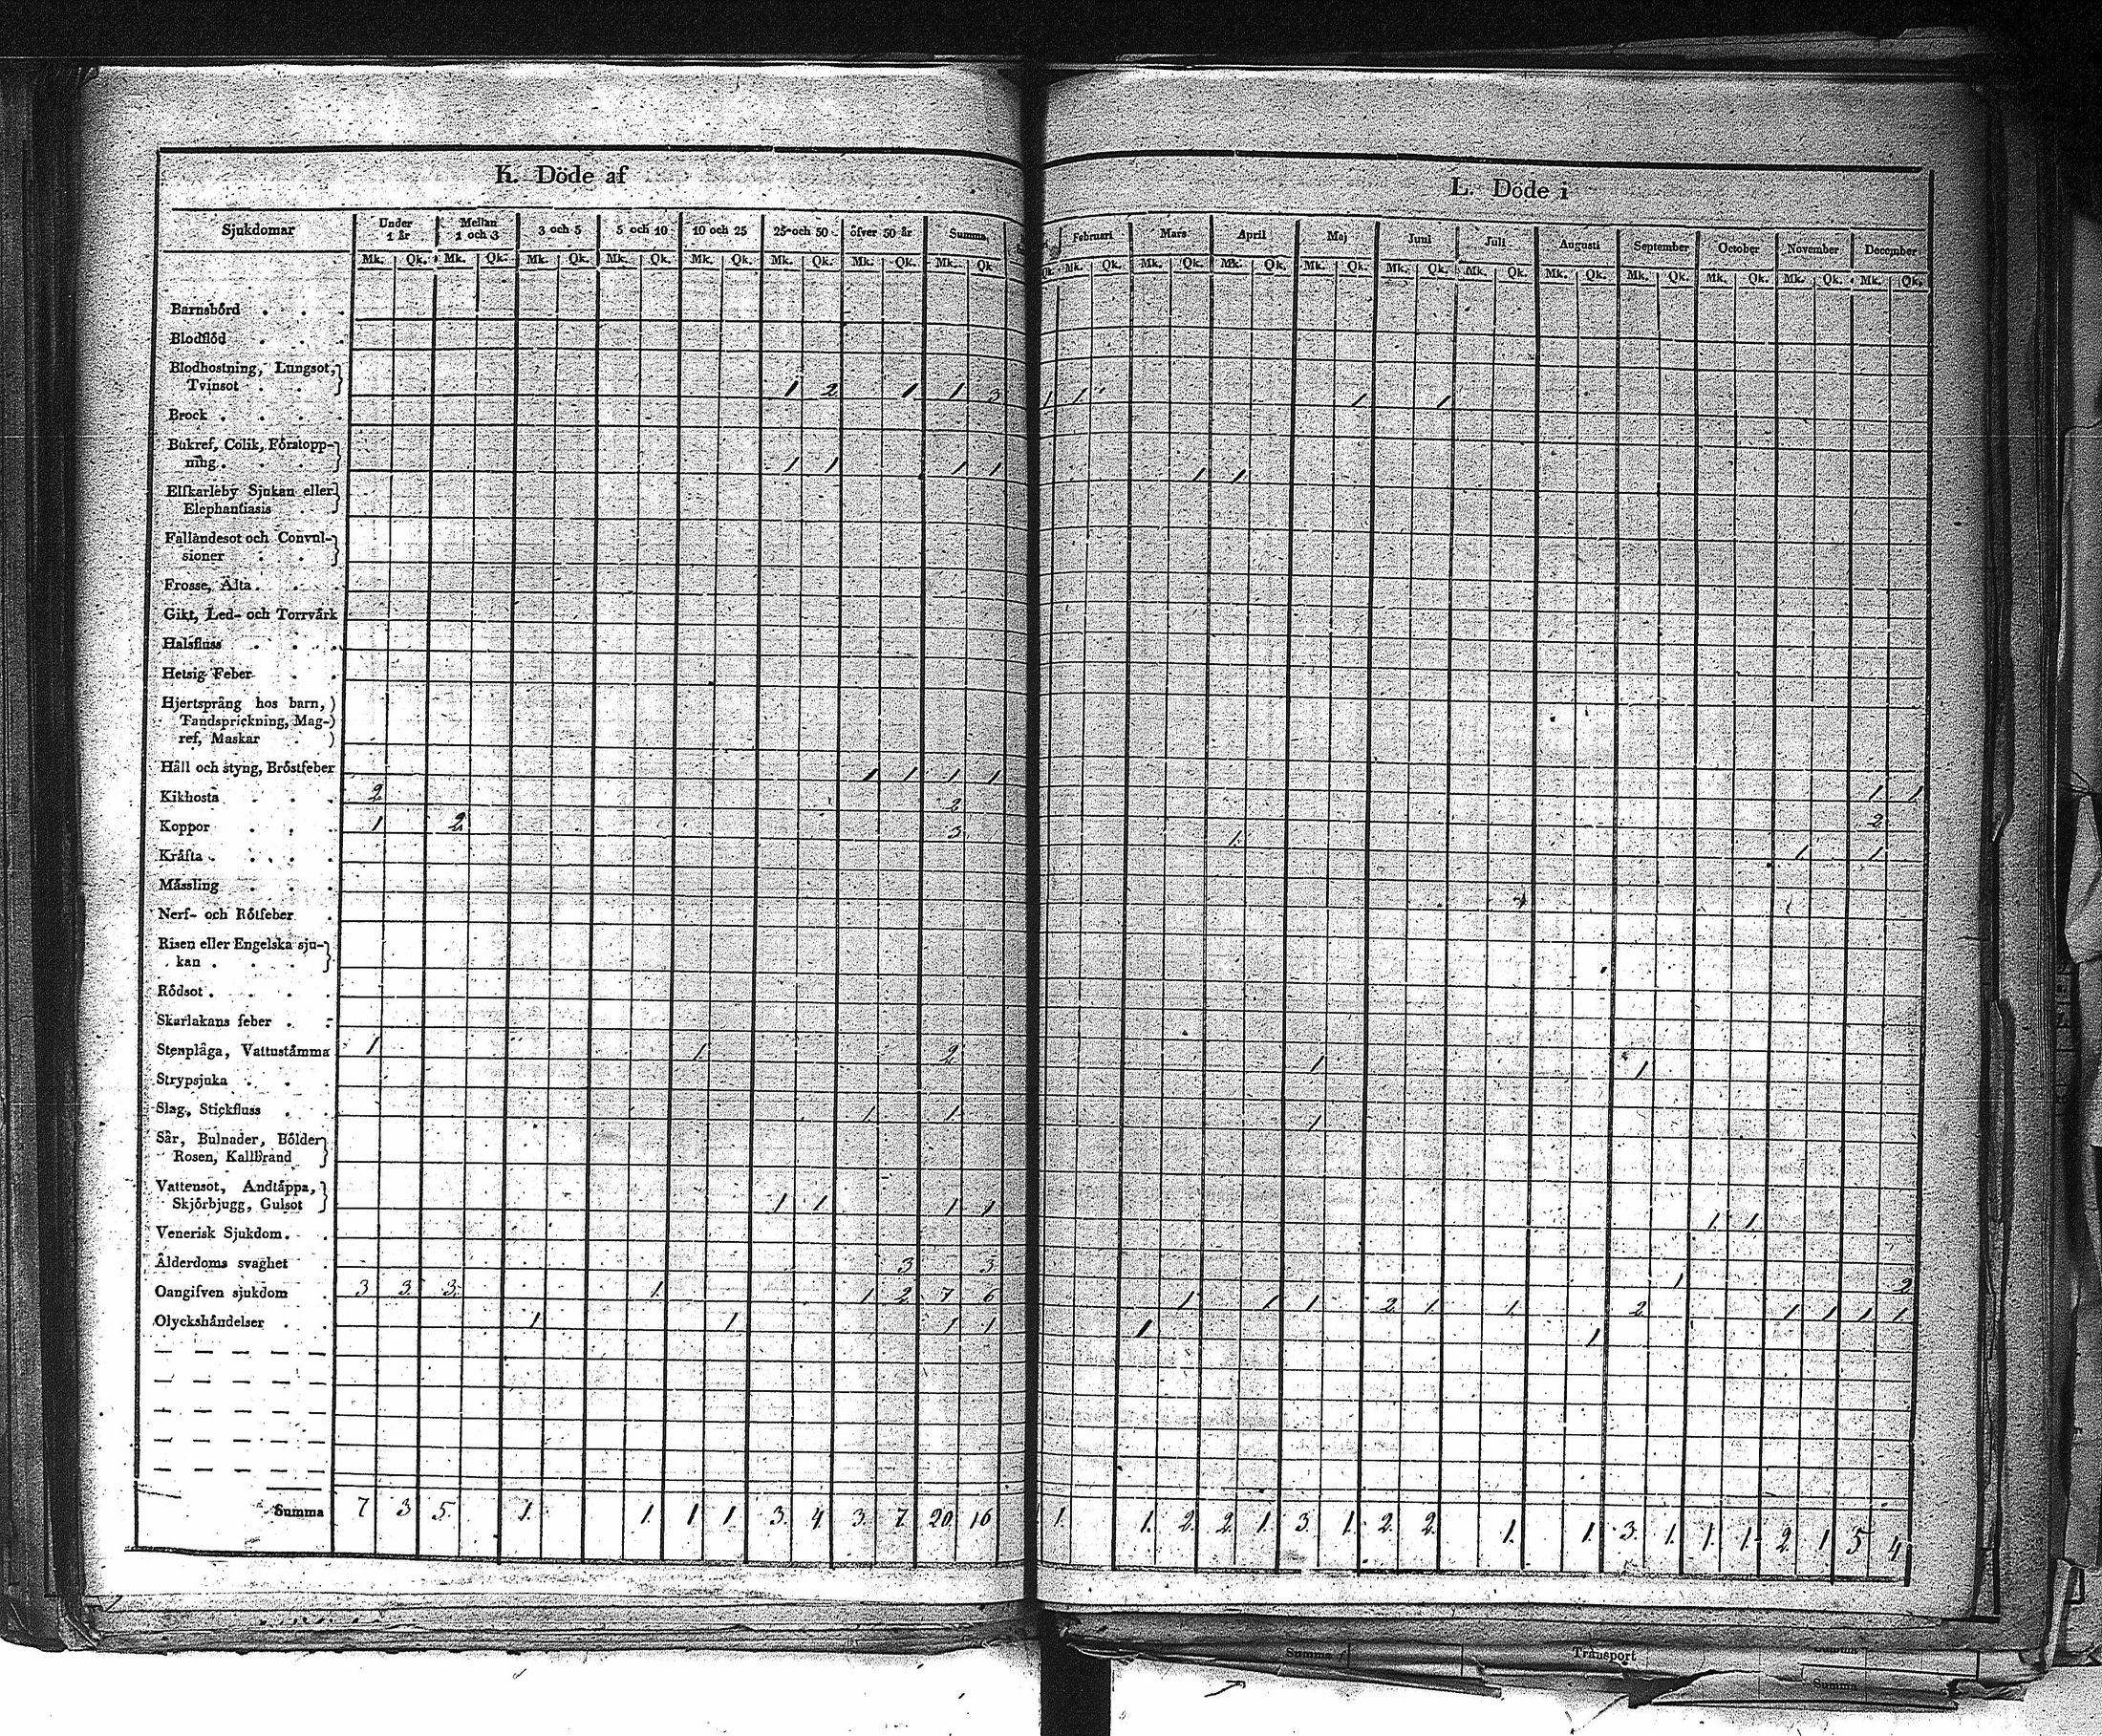 K. Döde af
Sjukdomar Under 1 år Mellan 1 och 3 3 och 5 5 och 10 10 och 25 25 och 50 öfver 50 år Summa
Mk. Qk. Mk. Qk. Mk. Qk. Mk. Qk. Mk. Qk. Mk. Qk. Mk. Qk. Mk. Qk.
Barnsbörd
Blodflöd
Blodhostning, Lungsot,
Tvinsot 1 2 1 1 3
Brock
Bukref, Colik, Förstopp-
ning 1 1 1 1
Elfkarleby Sjukan eller
Elephantiasis
Fallandesot och Convul-
sioner
Frosse, Älta
Gikt, Led- och Torrvärk
Halsfluss
Hetsig Feber
Hjertsprång hos barn,
Tandsprickning, Mag-
ref, Maskar
Håll och styng, Bröstfeber 1 1 1 1
Kikhosta 2 2
Koppor 1 2 3
Kräfta
Mässling
Nerf- och Rötfeber
Risen eller Engelska sju-
kan
Rödsot
Skarlakans feber
Stenplåga, Vattustämma 1 1 2
Strypsjuka
Slag, Stickfluss 1 1
Sår, Bulnader, Bölder
Rosen, Kallbrand
Vattensot, Andtäppa,
Skjörbjugg, Gulsot 1 1 1 1
Venerisk Sjukdom
Ålderdoms svaghet 3 3
Oangifven sjukdom 3 3 3 1 1 2 7 6
Olyckshändelser 1 1 1 1
Summa 7 3 5. 1. 1. 1 1. 3. 4. 3. 7. 20. 16
L. Döde i
Februari Mars April Maj Juni Juli Augusti September October November December
Qk. Mk. Qk. Mk. Qk. Mk. Qk. Mk. Qk. Mk. Qk. Mk. Qk. Mk. Qk. Mk. Qk. Mk. Qk. Mk. Qk. Mk. Qk.
1 1 1 1
1 1
1 1
2
1
1 1
1 1
1
1 1
1 2
1 1 1 2 1 1 2 1 1 1 1
1 1
1. 1. 2. 2. 1. 3. 1. 2. 2. 1. 1. 3. 1. 1. 1. 2. 1 5 4
Summa Transport
Summa